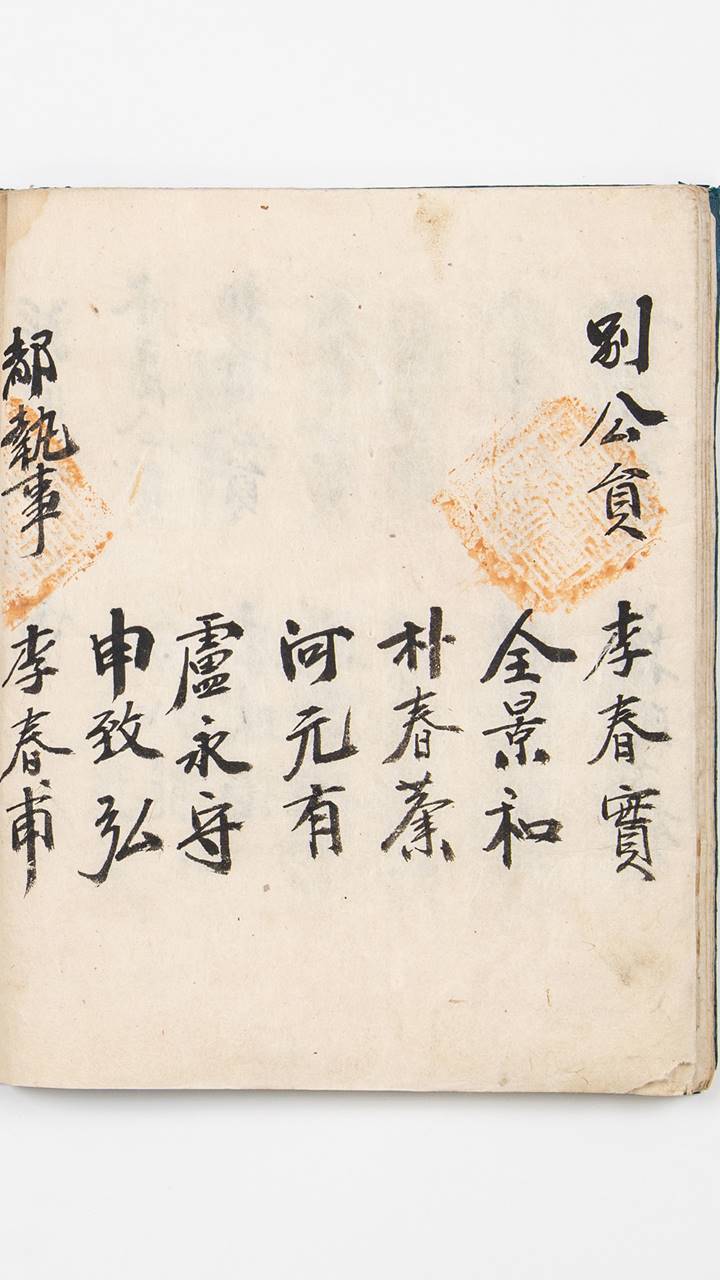 別公員 李春實
全景和
朴春
河元有
盧永守
申致弘
都執事 李春甫